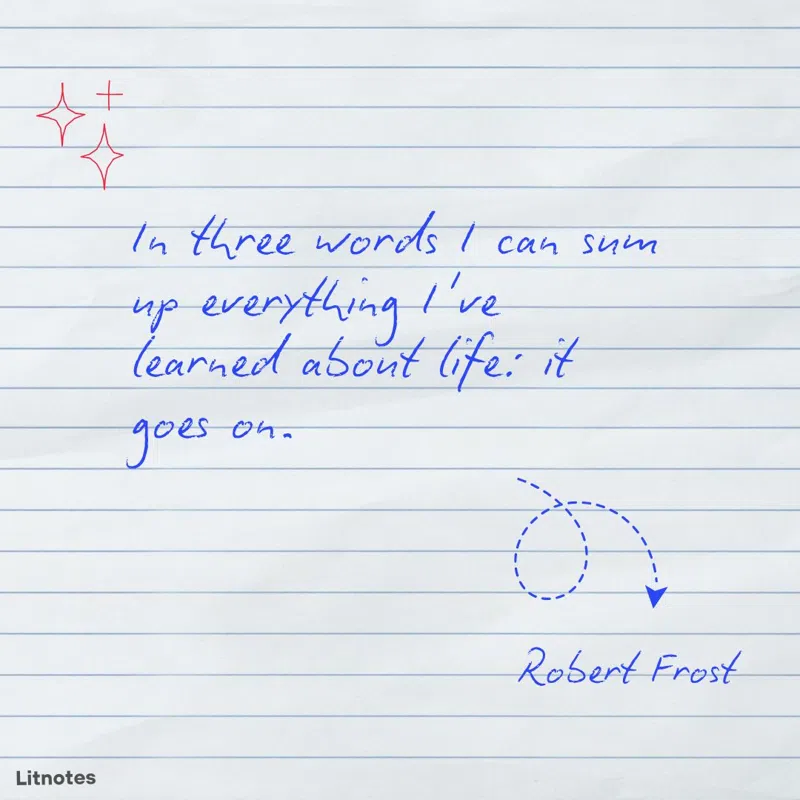 In three words I can sum
up everything I've
learned about life: it
goes on.
Robert Frost
Litnotes